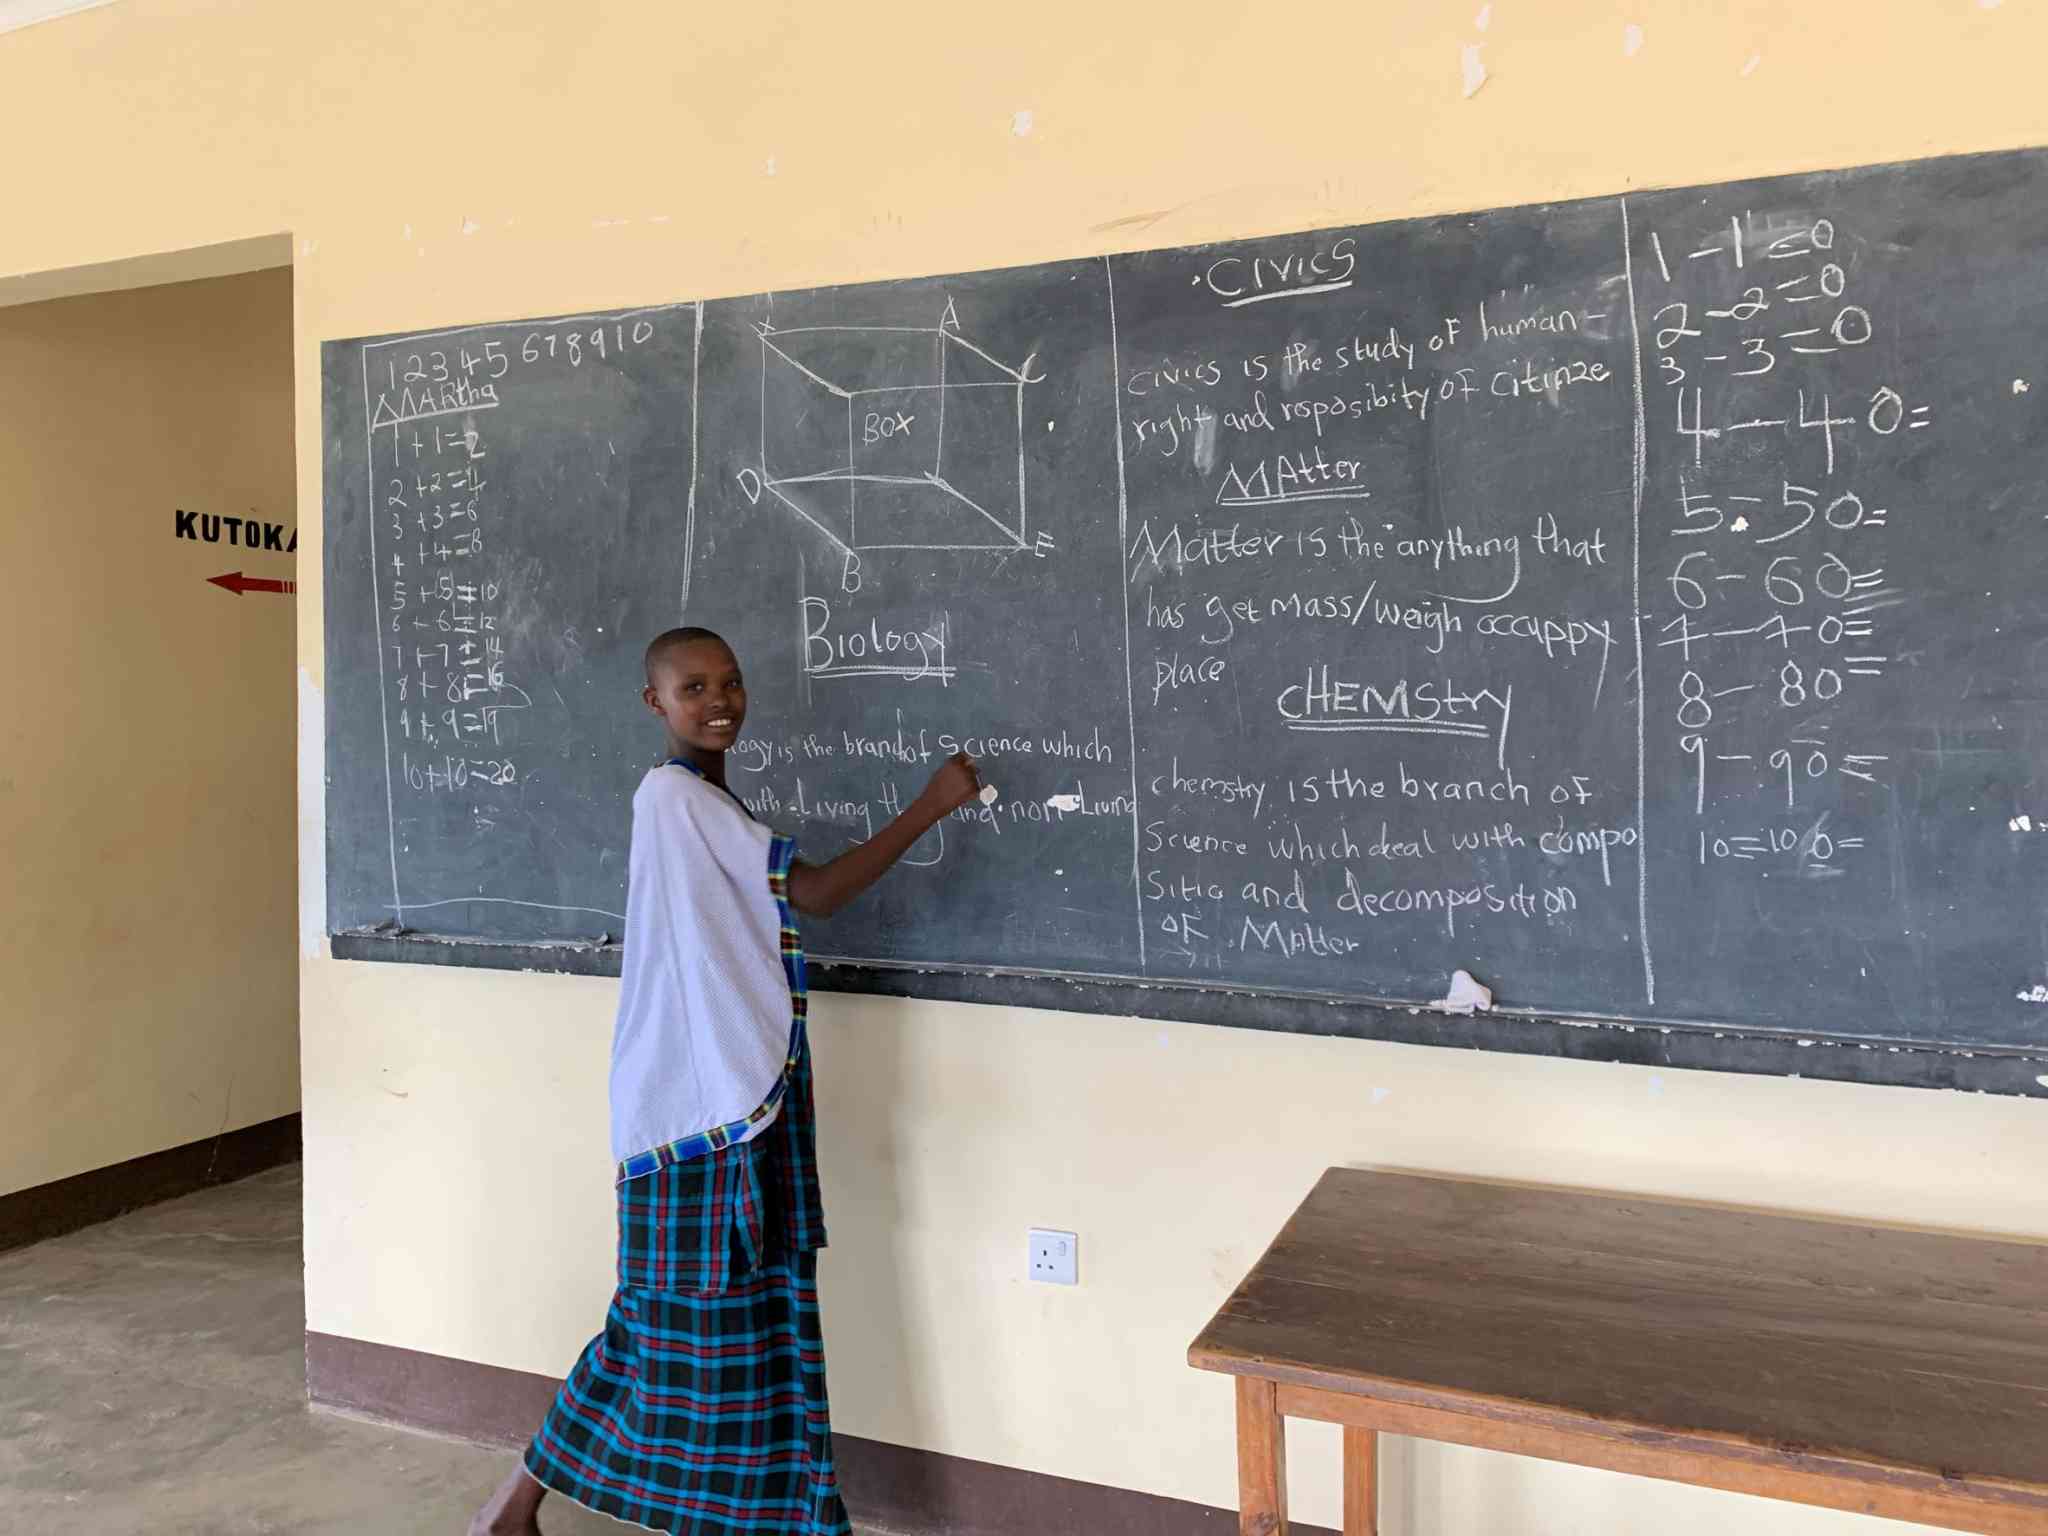 KUTOKA
1 2 3 4 5 6 7 8 9 10
MARtha
1 + 1 = 2
2 + 2 = 4
3 + 3 = 6
4 + 4 = 8
5 + 5 = 10
6 + 6 = 12
7 + 7 = 14
8 + 8 = 16
9 + 9 = 19
10 + 10 = 20
X A
C
BOX
D
E
B
Biology
is the branch of Science which
with Living and non Living
CIVICS
civics is the study of human -
right and resposibity of citinze
MAtter
Matter is the anything that
has get mass/weigh occuppy
place
CHEMStry
chemstry is the branch of
Science which deal with compo
sitio and decomposition
of Matter
1 - 1 = 0
2 - 2 = 0
3 - 3 = 0
4 - 4 0 =
5 - 5 0 =
6 - 6 0 =
7 - 7 0 =
8 - 8 0 =
9 - 9 0 =
10 = 10 0 =